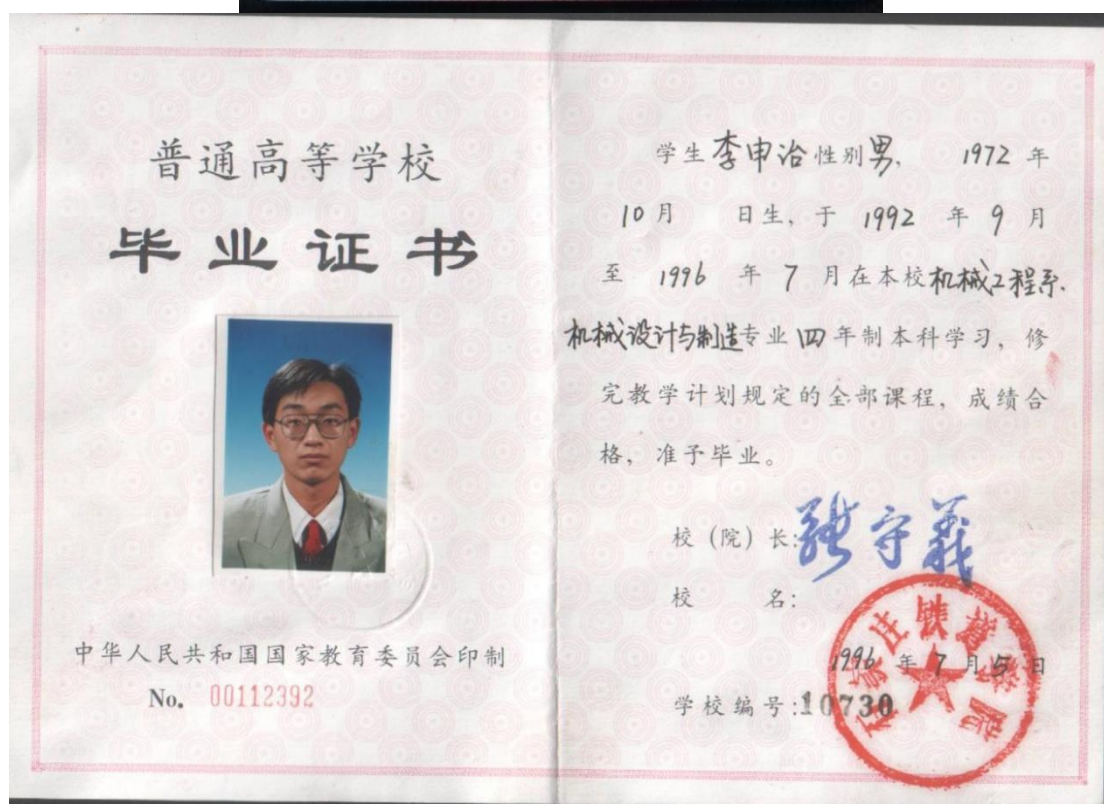 普通高等学校
毕业证书
中华人民共和国国家教育委员会印制
No. 00112392
学生李申治性别男, 1972 年
10月 日生, 于 1992 年 9 月
至 1996 年 7 月在本校机械工程系.
机械设计与制造专业四年制本科学习, 修
完教学计划规定的全部课程, 成绩合
格, 准予毕业。
校(院)长:张守義
校 名:
石家庄铁道学院
1996 年 7 月 5 日
学校编号:10730